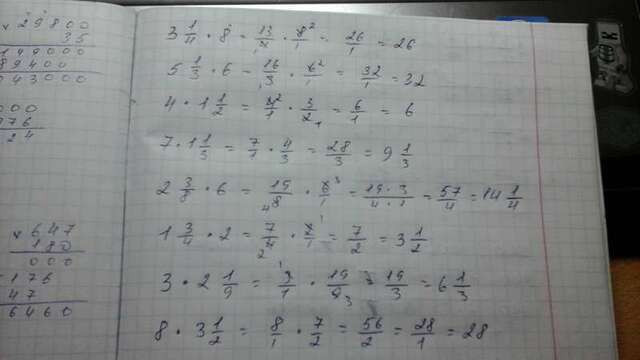 29800
35
149000
89400
043000
000
24
647
180
000
176
47
6460
3 1/4 · 8 = 13/4 · 8/1 2 = 26/1 = 26
5 1/3 · 6 = 16/3 1 · 6/1 2 = 32/1 = 32
4 · 1 1/2 = 4/1 2 · 3/2 1 = 6/1 = 6
7 · 1 1/3 = 7/1 · 4/3 = 28/3 = 9 1/3
2 3/8 · 6 = 19/8 4 · 6/1 3 = 19 · 3/4 · 1 = 57/4 = 14 1/4
1 3/4 · 2 = 7/4 2 · 2/1 1 = 7/2 = 3 1/2
3 · 2 1/9 = 3/1 1 · 19/9 3 = 19/3 = 6 1/3
8 · 3 1/2 = 8/1 · 7/2 = 56/2 = 28/1 = 28